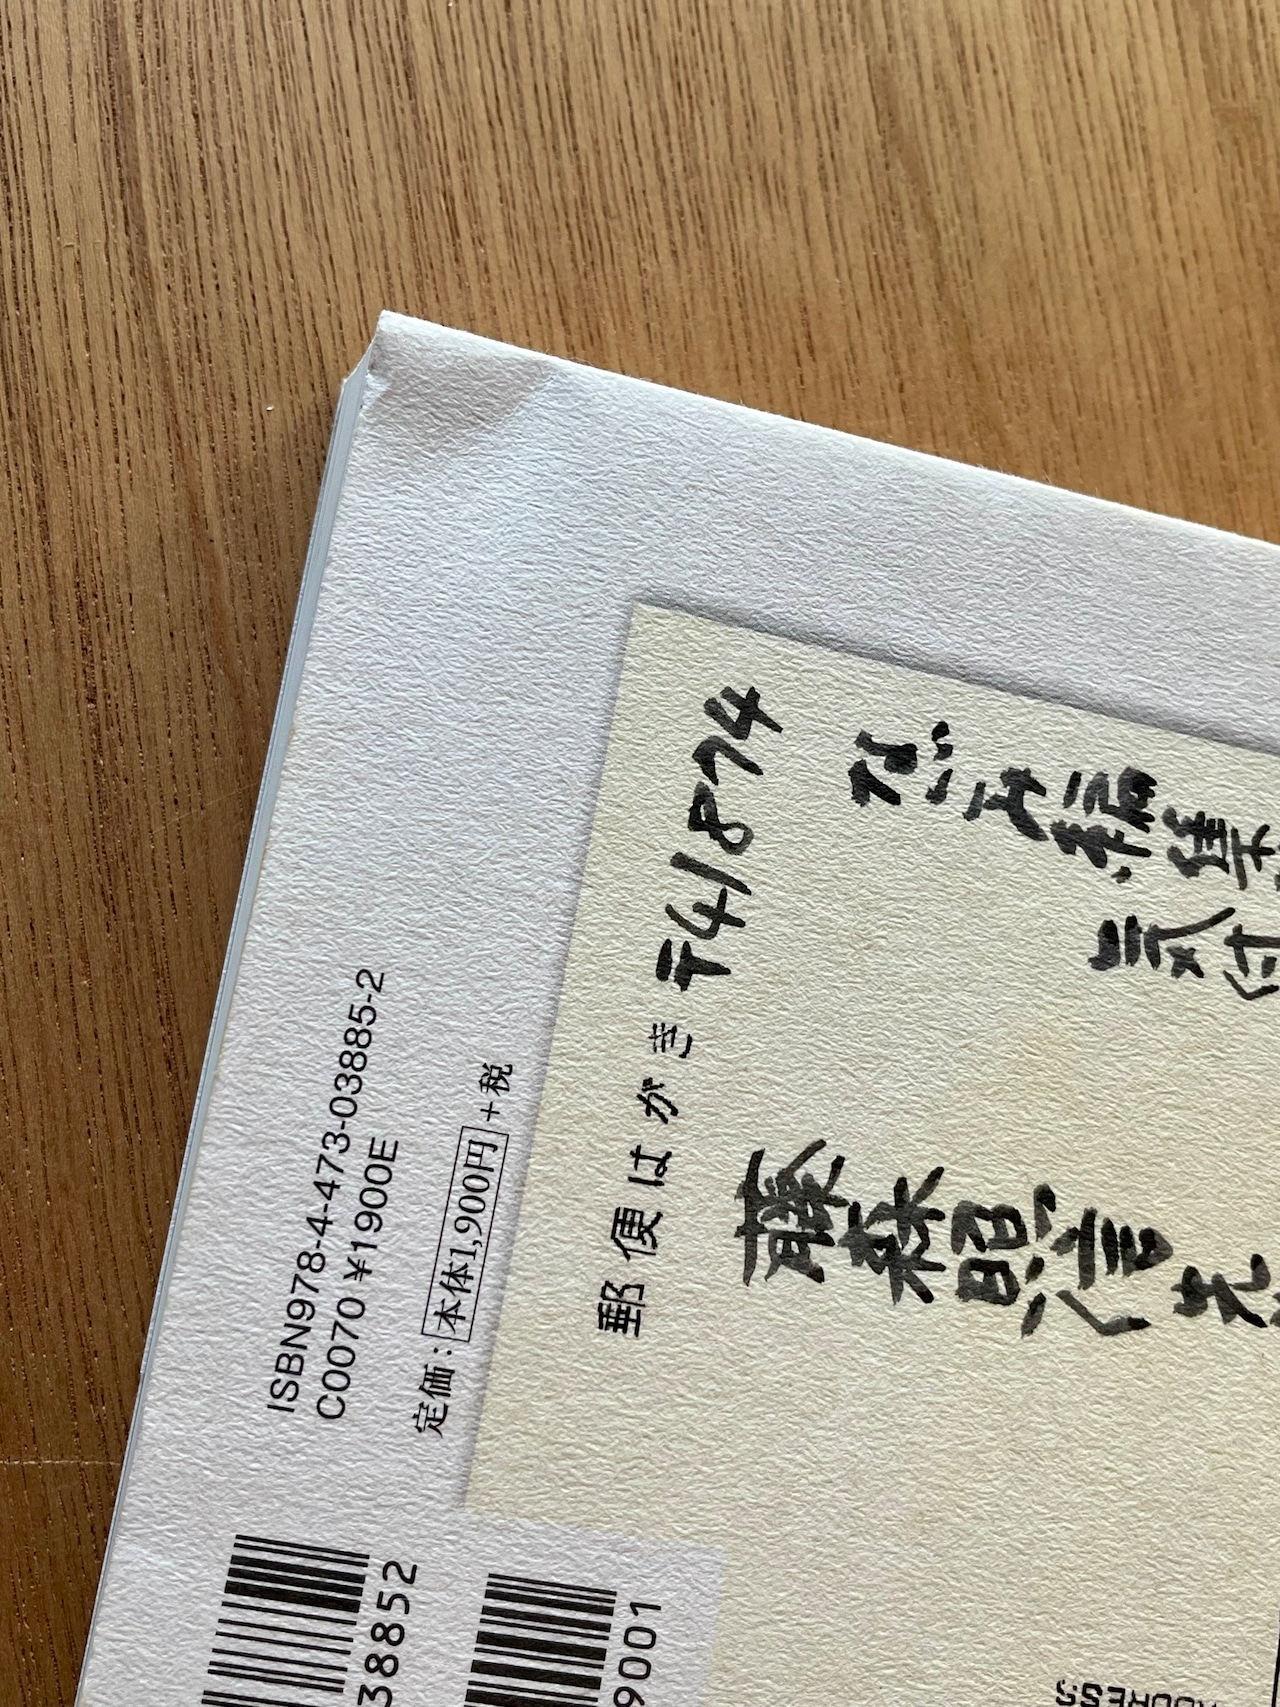 ISBN978-4-473-03885-2
C0070 ¥1900E
定価：本体1,900円＋税
38852
9001
郵便はがき
〒41874
気付
藤森照信先
ADDRESS